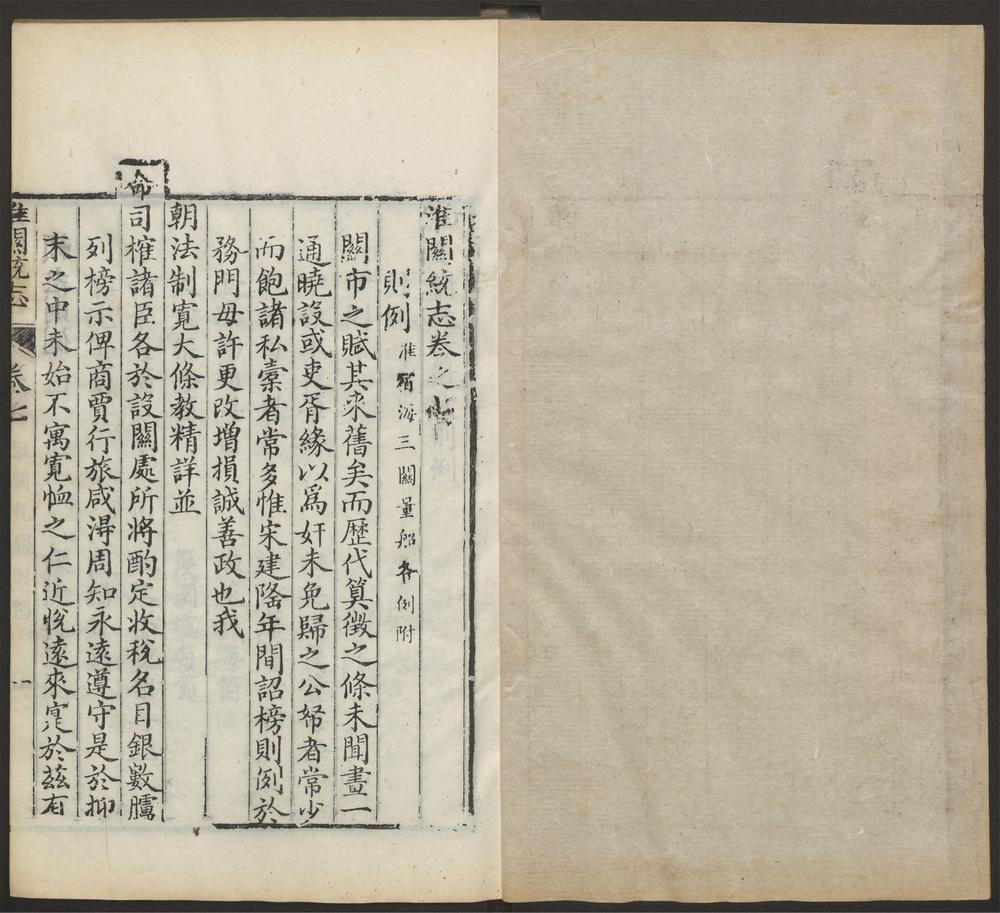 淮關統志卷之七
則例 淮宿海三關量船各例附
關市之賦其來舊矣而歷代算徵之條未聞畫一
通曉設或吏胥緣以爲奸未免歸之公帑者常少
而飽諸私橐者常多惟宋建隆年間詔榜則例於
務門毋許更改增損誠善政也我
朝法制寬大條教精詳並
命司榷諸臣各於設關處所將酌定收稅名目銀數臚
列榜示俾商賈行旅咸淂周知永遠遵守是於抑
末之中未始不寓寬恤之仁近悅遠來寔於茲有
淮關統志 卷七 一